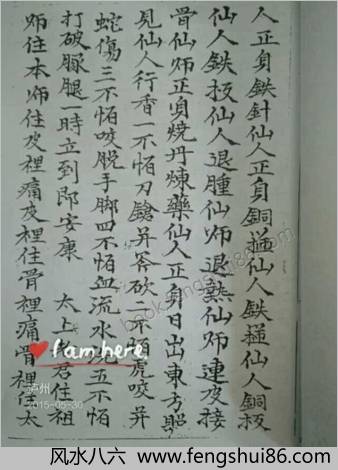 人正負鉄針仙人正負銅搥仙人鉄搥仙人銅板
仙人鉄板仙人退腫仙师退熱仙师連皮接
骨仙师正負燒丹煉藥仙人正負日出東方照
見仙人行香一不怕刀鎗弁斧砍二不怕虎咬弁
蛇傷三不怕咬脱手脚四不怕血流水 五不怕
打破脲腿一時立到即安康 太上 君住祖
师住本师住皮裡痛皮裡住骨裡痛骨裡住太
I'm here
泸州
2015-05-30
books.fengshui86.com
风水八六 www.fengshui86.com